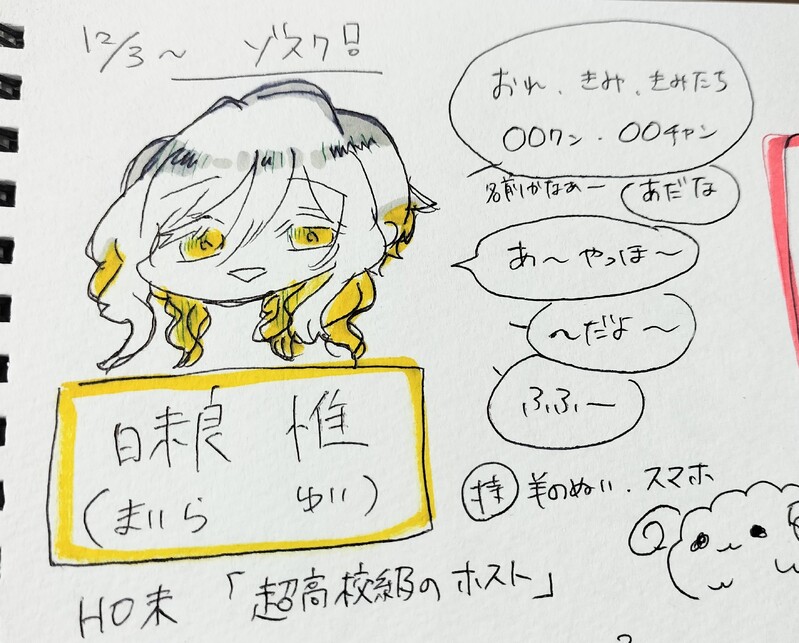 12/3~ ゾスク!
おれ、きみ、きみたち
〇〇クン・〇〇チャン
名前かなぁー あだな
あ〜やっほ〜
〜だよ〜
ふふー
日未良 惟
(まいら ゆい)
持 羊のぬい、スマホ
HO未 「超高校級のホスト」